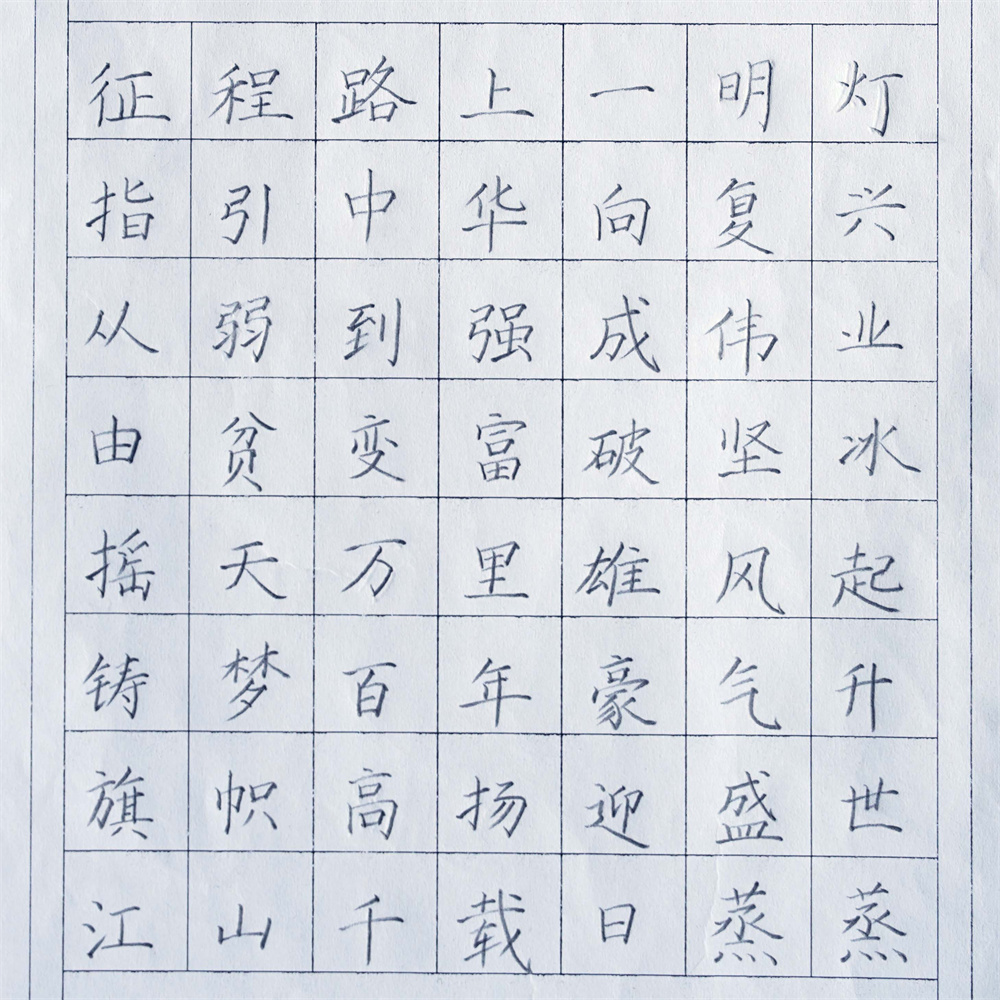 征程路上一明灯
指引中华向复兴
从弱到强成伟业
由贫变富破坚冰
摇天万里雄风起
铸梦百年豪气升
旗帜高扬迎盛世
江山千载日蒸蒸